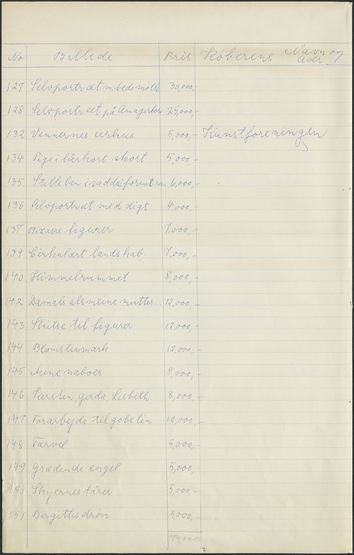 No Billede Pris Køberens Navn og Adr.
127 Selvportræt m bedstemoder 30,000,-
128 Selvportræt på Amager 25,000,-
132 Vennernes 6,000,- Kunstforeningen
134 Pige i kort skort 5,000,-
135 Stilleben 6,000,-
136 Selvportræt med digt 4,000,-
137 Bizarre figurer 7,000,-
139 Cirkulært landskab 7,000,-
140 Himmelrummet 8,000,-
142 Damals als meine mutter 12,000,-
143 Skitse til figurer 12,000,-
144 Blomstermark 12,000,-
145 Mine naboer 8,000,-
146 Kirsten, gerda, Lisbeth 8,000,-
147 Forarbejde til gobelin 10,000,-
148 Farvel 6,000,-
149 Grædende engel 5,000,-
Stjernes tårer 5,000,-
151 Birgittes drøm